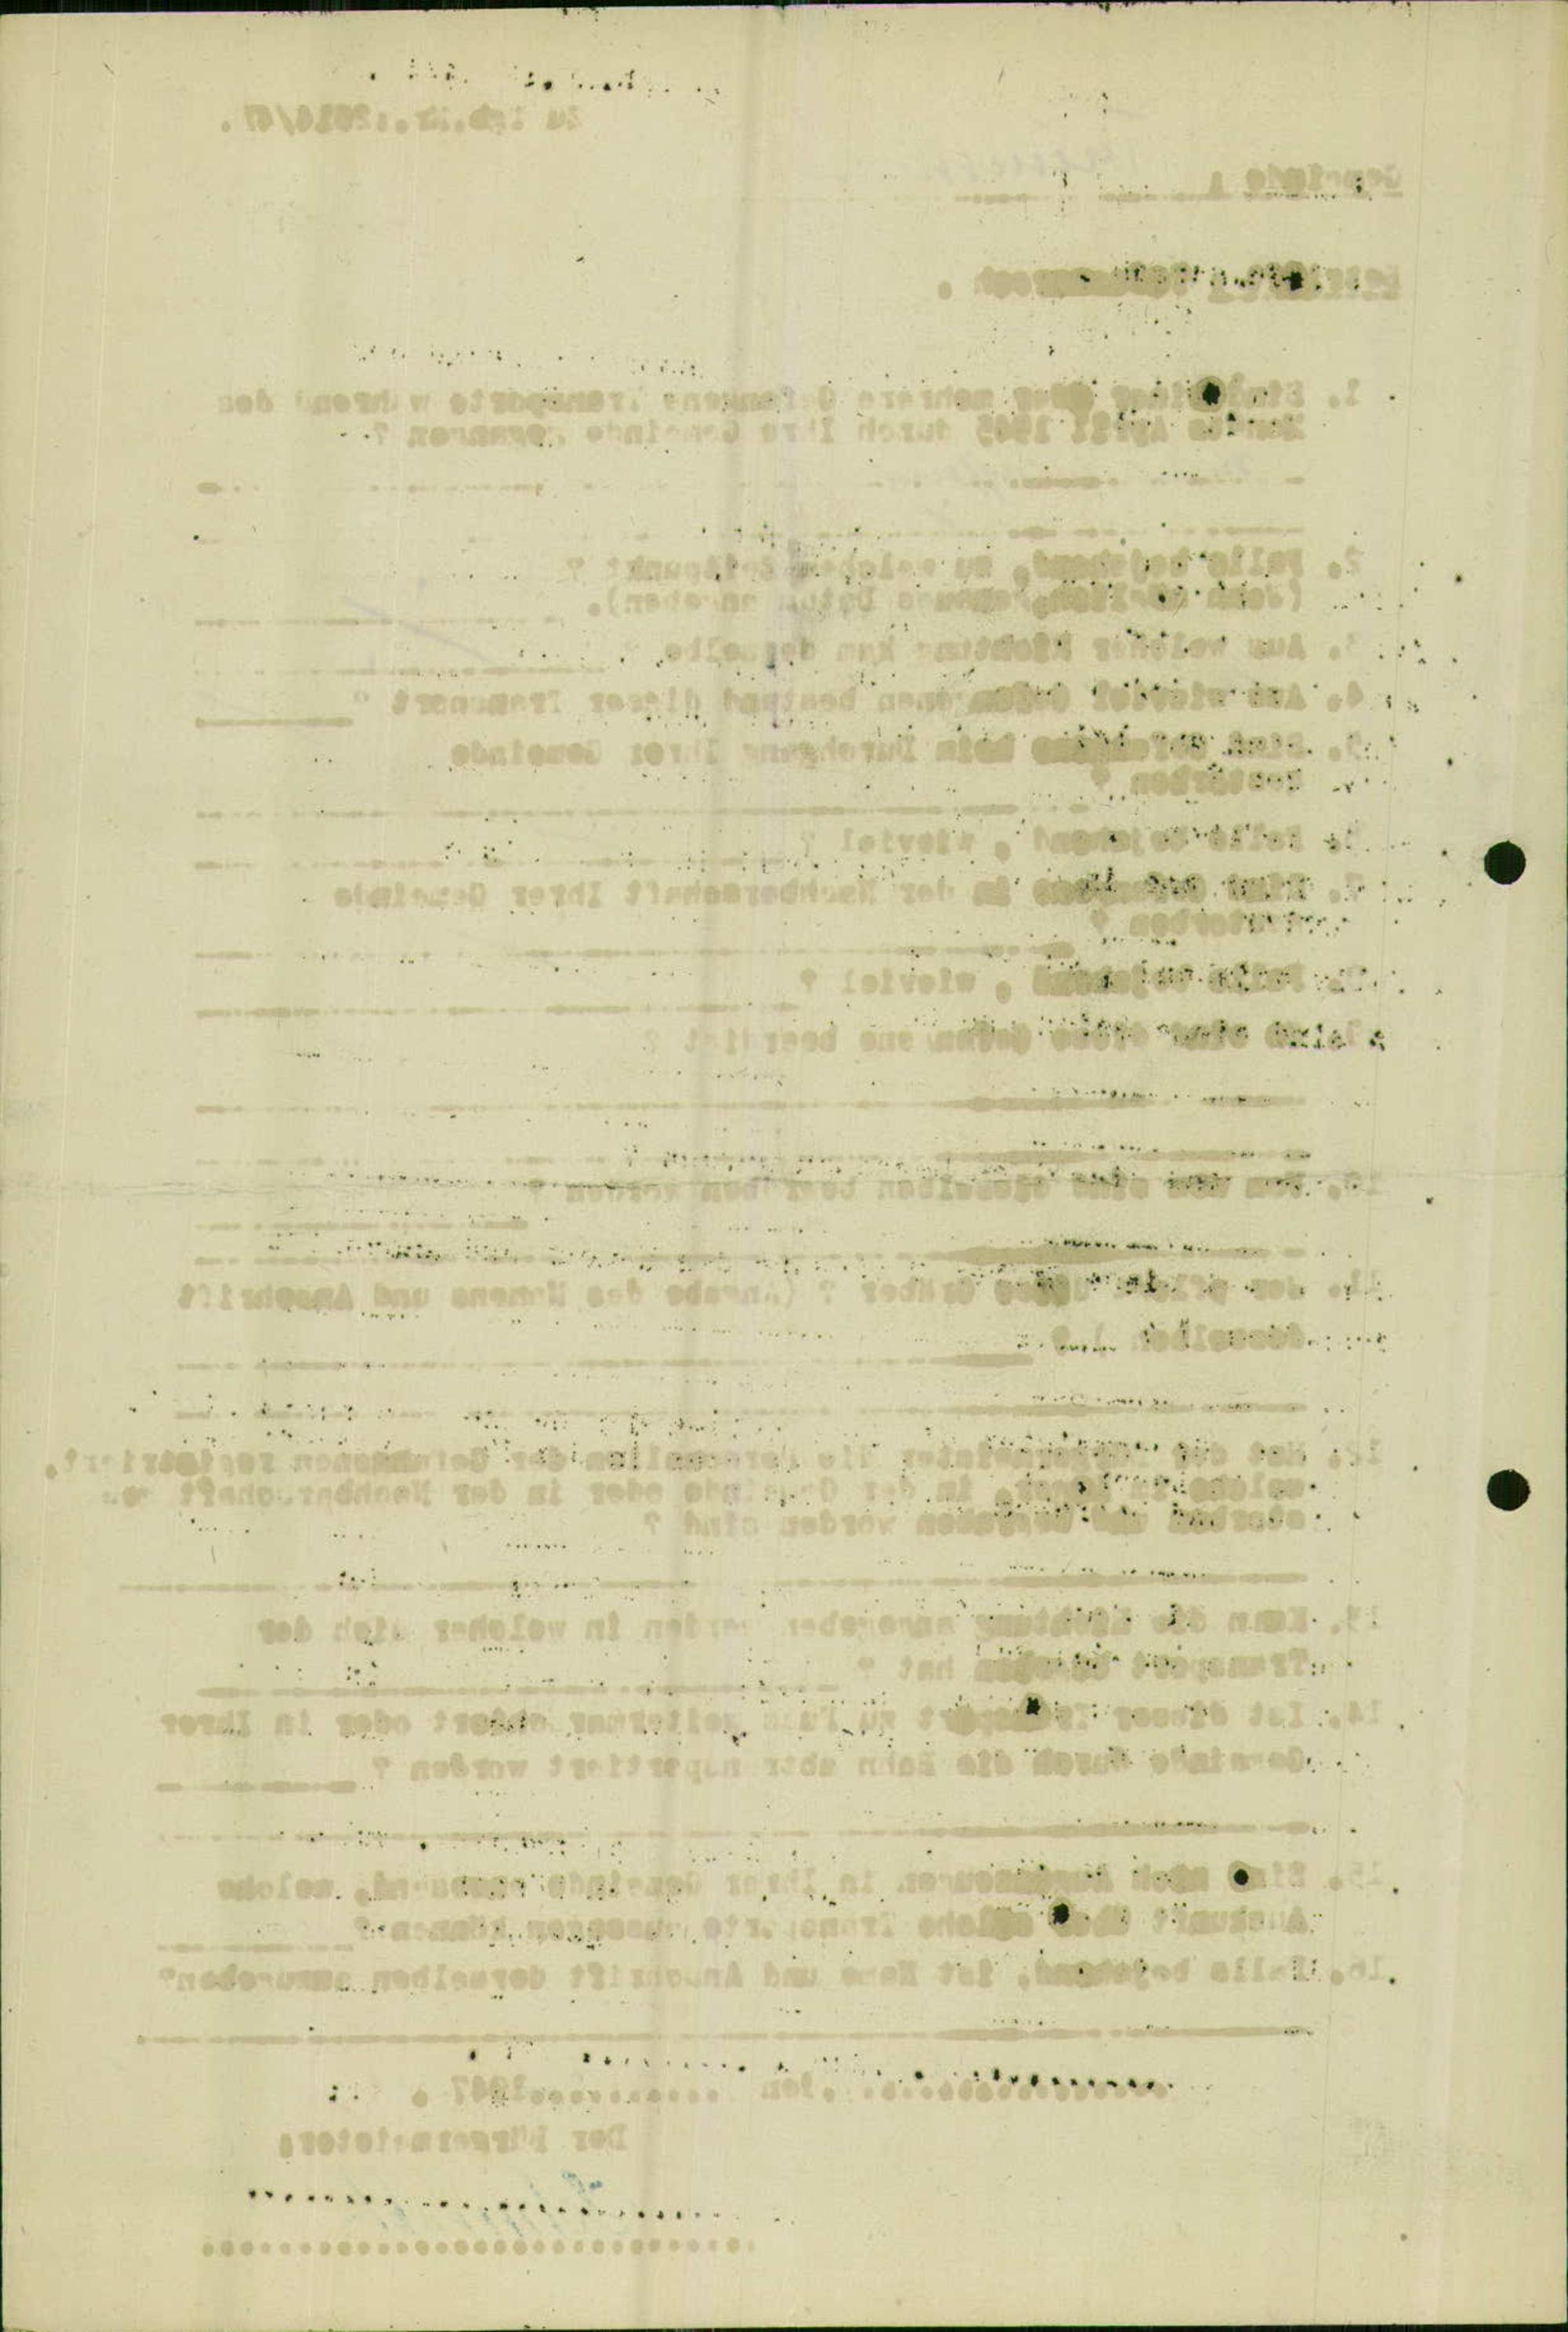 Zu Tgb.Nr.: 2016/47.
Gemeinde :
1. Sind oder mehrere Gefangene Transporte während des
Monats April 1945 durch Ihre Gemeinde gegangen ?
2. Falls bejahend, zu welchem Zeitpunkt ?
(Wenn möglich, genaues Datum angeben).
3. Aus welcher Richtung kam derselbe
4. Aus wieviel Gefangenen bestand dieser Transport ?
5. Sind Gefangene beim Durchgang Ihrer Gemeinde
gestorben ?
6. Falls bejahend , wieviel ?
7. Sind Gefangene in der Nachbarschaft Ihrer Gemeinde
gestorben ?
8. Falls bejahend , wieviel ?
sind diese Gefangene beerdigt ?
10. Von wem sind dieselben begraben worden ?
11. Wer Gräber ? (Angabe des Namens und Anschrift
desselben ) ?
12. Hat der Bürgermeister die Personalien der Gefangenen registriert,
welche in der Gemeinde oder in der Nachbarschaft ge-
storben und begraben worden sind ?
13. Kann die Richtung angegeben werden in welcher sich der
Transport begeben hat ?
14. Ist dieser Transport zu Fuss weitermarschiert oder in Ihrer
Gemeinde durch die Bahn abtransportiert worden ?
15. Sind noch in Ihrer Gemeinde, welche
Auskunft über solche Transporte können ?
16. Falls bejahend, ist Name und Anschrift derselben anzugeben?
, den 1947 .
Der Bürgermeister: